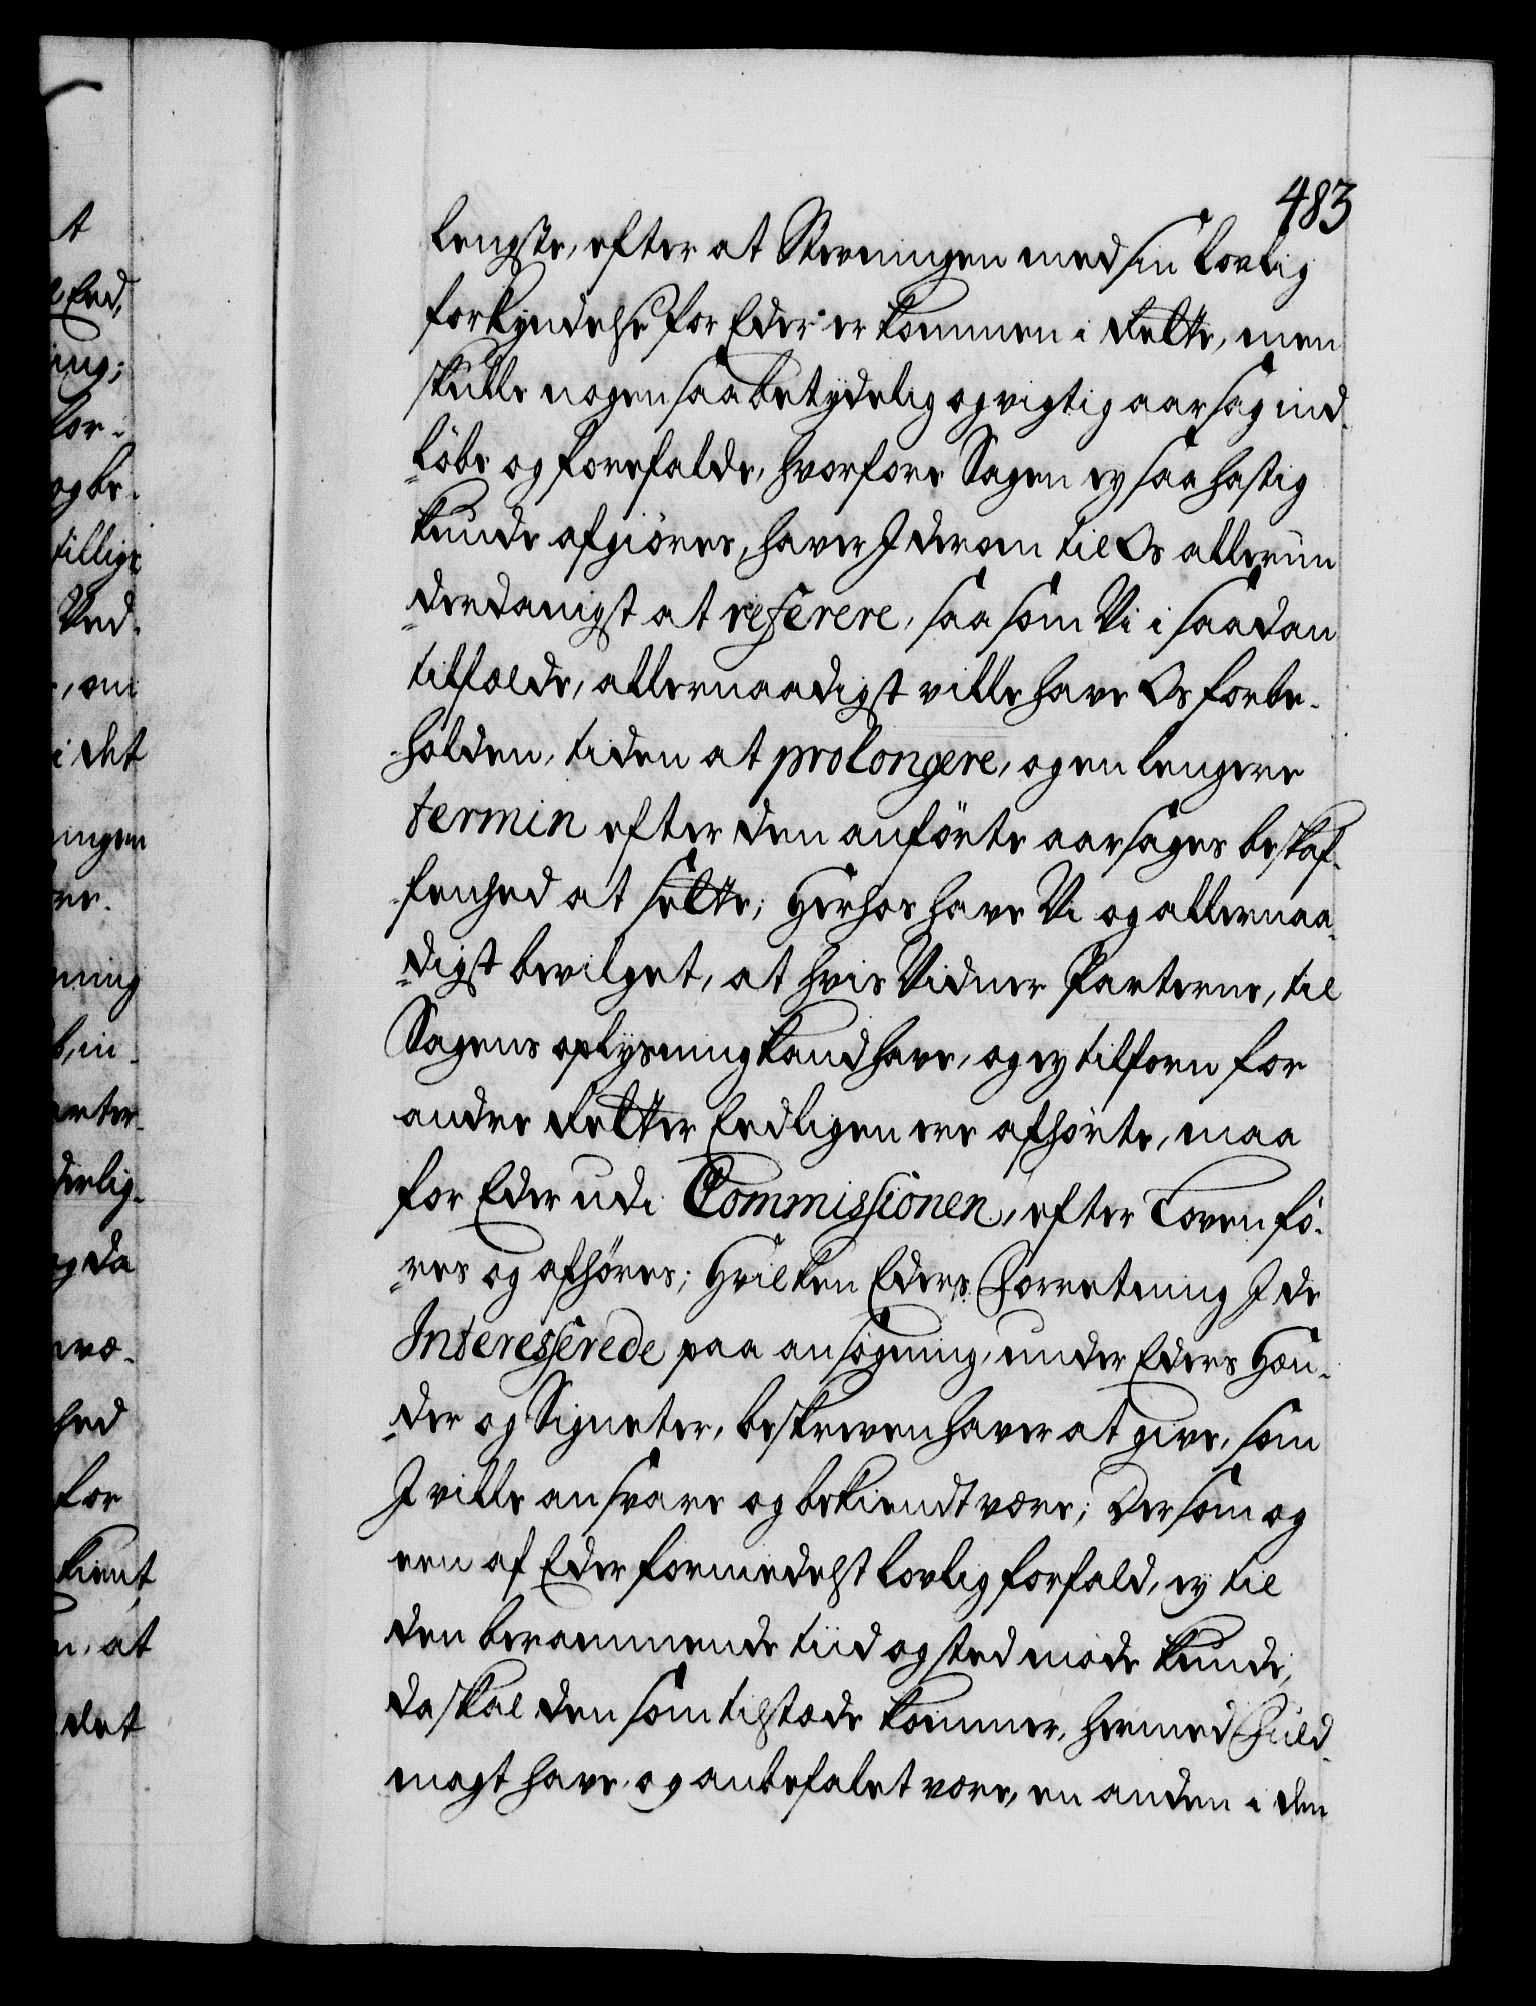 483
lengste, efter at Stevningen med sin lovlig
forkyndelse for Eder er kommen i Rette, men
skulle nogen saa betydelig og vigtig aarsag ind-
löbe og forefalde, hvorfore Sagen ey saa hastig
kunde afgiöres, haver I derom til Os allerun
derdanigst at referere, saa som Vi i saadan
tilfælde, allernaadigst ville have Os forbe-
holden, tiden at prolongere, og en lengere
termin efter den anförte aarsages beskaf-
fenhed at sette; Herhos have Vi og allernaa-
digst bevilget, at hvis Vidner Parterne, til
Sagens oplysning kand have, og ey tilforn for
andre Retter Eedligen ere afhörte, maa
for Eder udi Commissionen, efter Loven fö-
res og afhöres; Hvilken Eders Forretning I de
Interesserede paa ansögning, under Eders Hæn-
der og Signeter, beskreven haver at give, som
I ville ansvare og bekiendt være; Dersom og
een af Eder formedelst lovlig forfald, ey til
den berammende tiid og sted möde kunde,
da skal den som tilstæde kommer, hermed Fuld-
magt have, og anbefalet være, en anden i den
t
Eed,
ing;
for-
og be-
tillige
Ved-
, om
i det
ingen
re.
ning
b, in-
arter-
derlig-
og da
hed
for
kient,
n, at
det